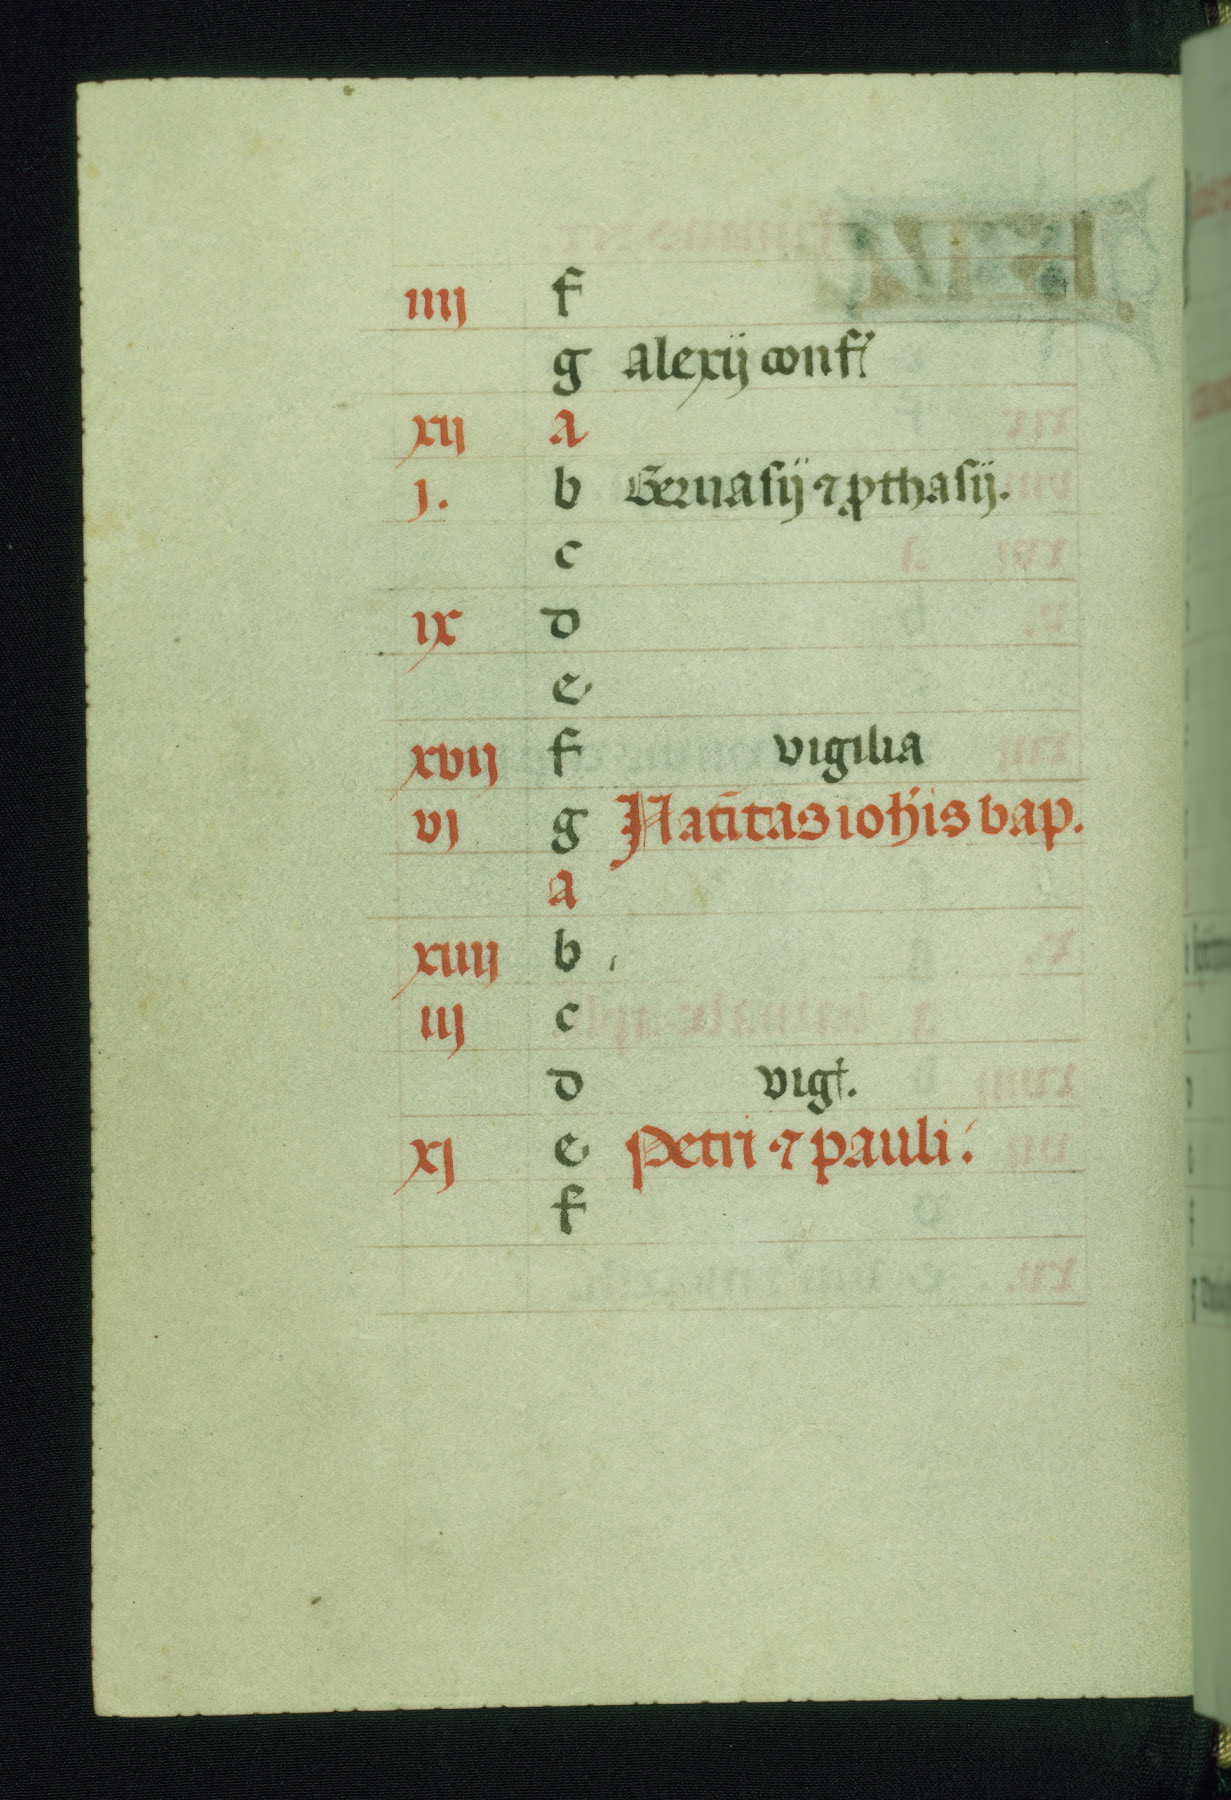 iiij f
g alexij conf.
xij a
j. b Geruasij ⁊ ꝓthasij.
c
ix d
e
xvij f vigilia
vj g Natĩtas ioh̃is bap.
a
xiiij b
iij c
d vigł.
xj e Petri ⁊ pauli.
f